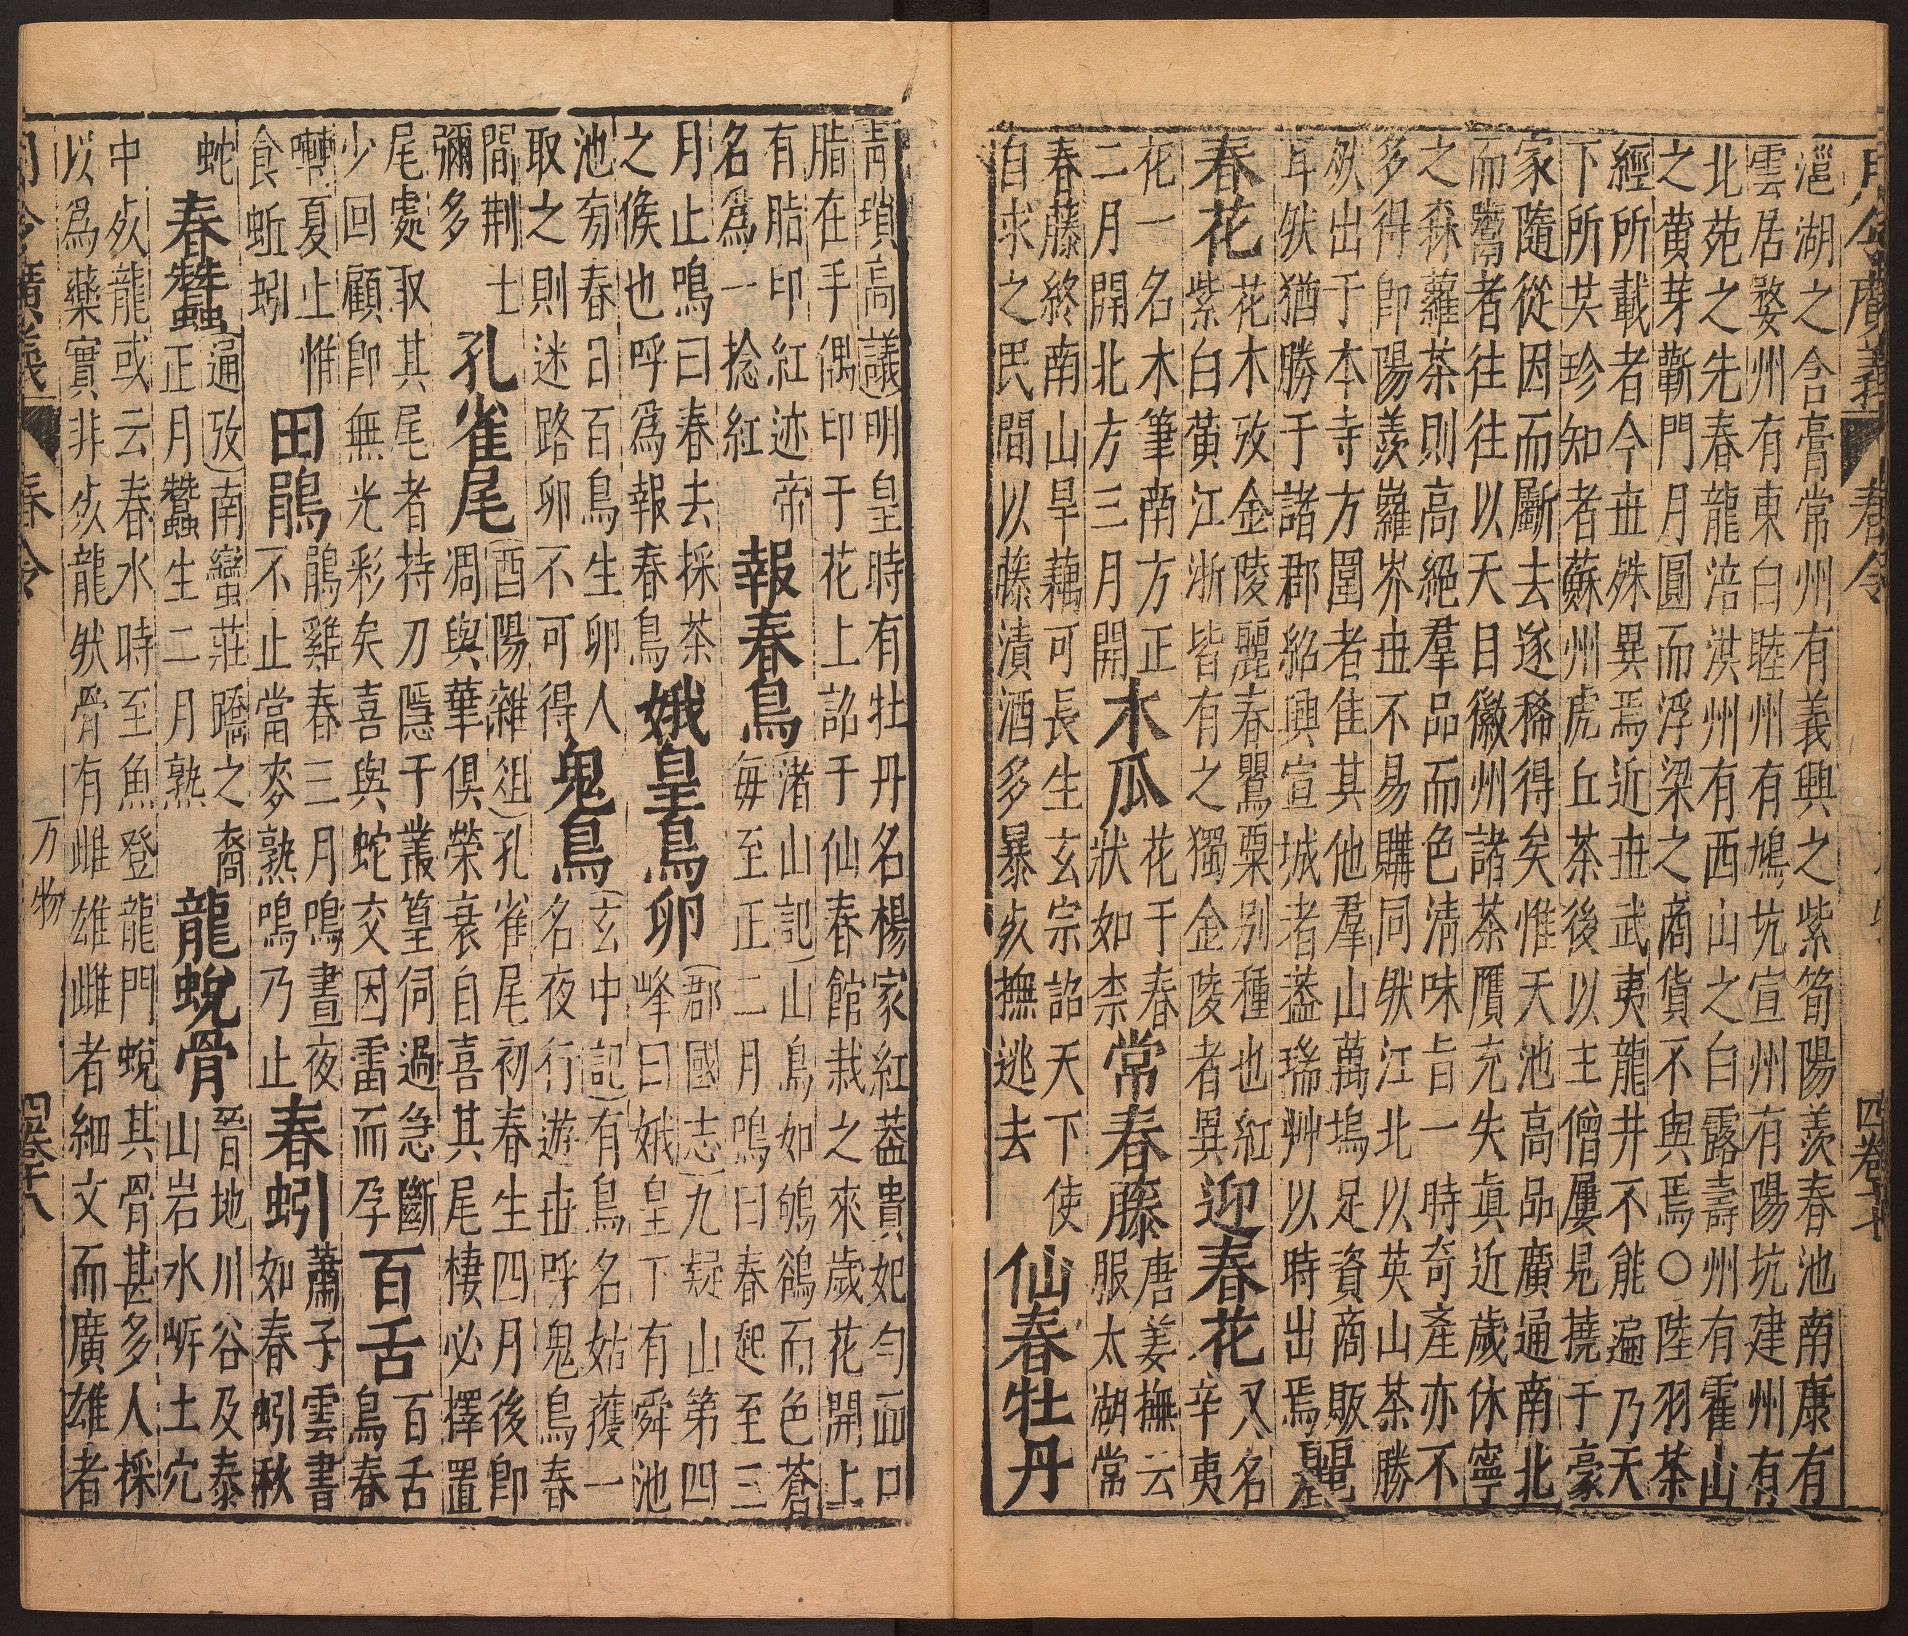 月令廣義 春令 四卷十
㴩湖之含膏常州有義興之紫筍陽羨春池南康有
雲居婺州有東白睦州有鳩坑宣州有陽坑建州有
北苑之先春龍涪洪州有西山之白露壽州有霍山
之黄芽蘄門月圓而浮梁之商貨不與焉○陸羽茶
經所載者今世殊異焉近世武夷龍井不能遍乃天
下所共珍知者蘇州虎丘茶後以主僧屢見撓于豪
家隨從因而斸去遂稀得矣惟天池高品廣通南北
而鬻者往往以天目徽州諸茶贋充失眞近歲休寧
之森蘿茶則高絕羣品而色清味旨一時奇產亦不
多得卽陽羨羅岕世不易購同然江北以英山茶勝
然出于本寺方圍者隹其他羣山萬塢足資商販
耳然猶勝于諸郡紹興宣城者葢瑞艸以時出焉
麗春花
花木攷金陵麗春罌粟别種也紅
紫白黃江浙皆有之獨金陵者異
迎春花
又名辛夷
花一名木筆南方正
二月開北方三月開
木瓜
花于春
狀如柰
常春藤
唐姜撫云
服太湖常
春藤終南山旱藕可長生玄宗詔天下使
自求之民間以藤漬酒多暴死撫逃去
仙春牡丹
青瑣高議明皇時有牡丹名楊家紅葢貴妃勻面口
脂在手偶印于花上詔于仙春館栽之來歲花開上
有脂印紅迹帝
名爲一捻紅
報春鳥
渚山記山鳥如鴝鵒而色蒼
每至正二月鳴曰春起至三
月止鳴曰春去採茶
之候也呼爲報春鳥
娥皇鳥卵
郡國志九疑山第四
峰曰娥皇下有舜池
池旁春日百鳥生卵人
取之則迷路卵不可得
鬼鳥
玄中記有鳥名姑獲一
名夜行遊世呼鬼鳥春
間荆士
彌多
孔雀尾
酉陽雜俎孔雀尾初春生四月後卽
凋與華俱榮衰自喜其尾棲必擇置
尾處取其尾者持刀隱于叢篁伺過急斷
少回顧卽無光彩矣喜與蛇交因雷而孕
百舌
百舌鳥春
囀夏止惟
食蚯蚓
田鵑
鵑雞春三月鳴晝夜
不止當麥熟鳴乃止
春蚓
蕭子雲書
如春蚓秋
蛇
春蠶
通攷南蠻莊蹻之裔
正月蠶生二月熟
龍蛻骨
晉地川谷及泰
山岩水㟁土穴
中死龍或云春水時至魚登龍門蛻其骨甚多人採
以爲藥實非死龍然骨有雌雄雌者細文而廣雄者
月令廣義 春令 万物 四卷十八